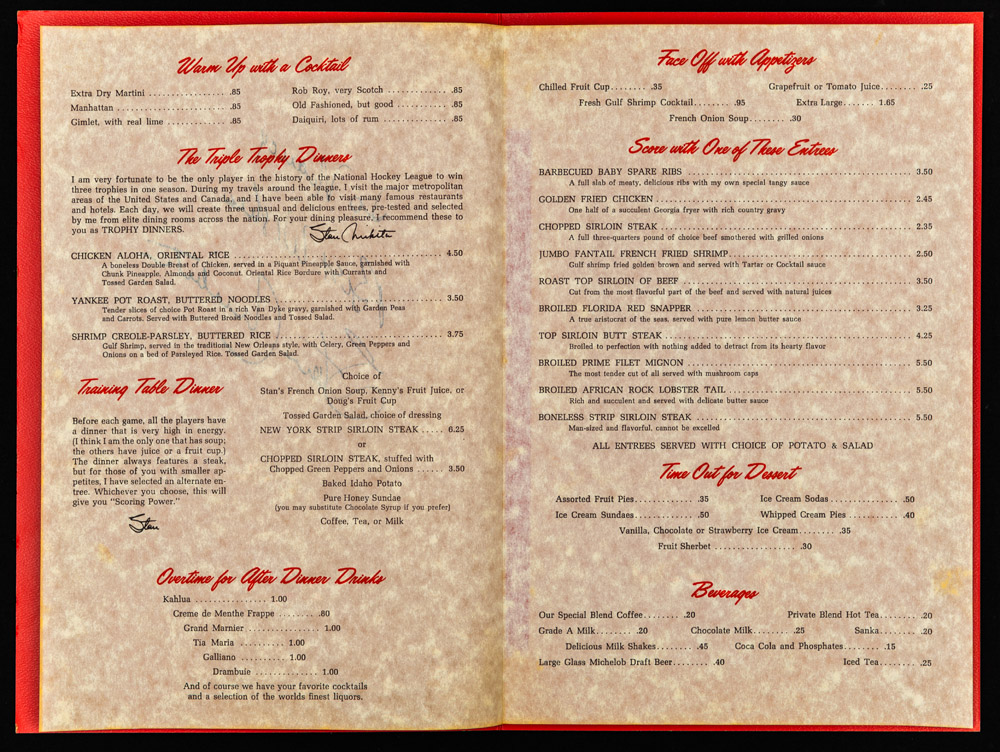 Warm Up with a Cocktail
Extra Dry Martini .................. .85
Manhattan .......................... .85
Gimlet, with real lime ............. .85
Rob Roy, very Scotch .............. .85
Old Fashioned, but good ........... .85
Daiquiri, lots of rum ............. .85
The Triple Trophy Dinners
I am very fortunate to be the only player in the history of the National Hockey League to win
three trophies in one season. During my travels around the league, I visit the major metropolitan
areas of the United States and Canada, and I have been able to visit many famous restaurants
and hotels. Each day, we will create three unusual and delicious entrees, pre-tested and selected
by me from elite dining rooms across the nation. For your dining pleasure, I recommend these to
you as TROPHY DINNERS.
Stan Mikita
CHICKEN ALOHA, ORIENTAL RICE ........ 4.50
A boneless Double Breast of Chicken, served in a Piquant Pineapple Sauce, garnished with
Chunk Pineapple, Almonds and Coconut. Oriental Rice Burdure with Currants and
Tossed Garden Salad.
YANKEE POT ROAST, BUTTERED NOODLES ........ 3.50
Tender slices of choice Pot Roast in a rich Van Dyke gravy, garnished with Garden Peas
and Carrots. Served with Buttered Broad Noodles and Tossed Salad.
SHRIMP CREOLE-PARSLEY, BUTTERED RICE ........ 3.75
Gulf Shrimp, served in the traditional New Orleans style, with Celery, Green Peppers and
Onions on a bed of Parsleyed Rice. Tossed Garden Salad.
Training Table Dinner
Before each game, all the players have
a dinner that is very high in energy.
(I think I am the only one that has soup;
the others have juice or a fruit cup.)
The dinner always features a steak,
but for those of you with smaller ap-
petites, I have selected an alternate en-
tree. Whichever you choose, this will
give you "Scoring Power."
Stan
Choice of
Stan's French Onion Soup, Kenny's Fruit Juice, or
Doug's Fruit Cup
Tossed Garden Salad, choice of dressing
NEW YORK STRIP SIRLOIN STEAK ..... 6.25
or
CHOPPED SIRLOIN STEAK, stuffed with
Chopped Green Peppers and Onions ...... 3.50
Baked Idaho Potato
Pure Honey Sundae
(you may substitute Chocolate Syrup if you prefer)
Coffee, Tea, or Milk
Overtime for After Dinner Drinks
Kahlua ................ 1.00
Creme de Menthe Frappe ......... .80
Grand Marnier ................ 1.00
Tia Maria .......... 1.00
Galliano .......... 1.00
Drambuie .............. 1.00
And of course we have your favorite cocktails
and a selection of the worlds finest liquors.
Face Off with Appetizers
Chilled Fruit Cup........ .35
Grapefruit or Tomato Juice........ .25
Fresh Gulf Shrimp Cocktail........ .95
Extra Large....... 1.65
French Onion Soup........ .30
Score with One of These Entrees
BARBECUED BABY SPARE RIBS ........ 3.50
A full slab of meaty, delicious ribs with my own special tangy sauce
GOLDEN FRIED CHICKEN ........ 2.45
One half of a succulent Georgia fryer with rich country gravy
CHOPPED SIRLOIN STEAK ........ 2.35
A full three-quarters pound of choice beef smothered with grilled onions
JUMBO FANTAIL FRENCH FRIED SHRIMP ........ 2.50
Gulf shrimp fried golden brown and served with Tartar or Cocktail sauce
ROAST TOP SIRLOIN OF BEEF ........ 3.50
Cut from the most flavorful part of the beef and served with natural juices
BROILED FLORIDA RED SNAPPER ........ 3.25
A true aristocrat of the seas, served with pure lemon butter sauce
TOP SIRLOIN BUTT STEAK ........ 4.25
Broiled to perfection with nothing added to detract from its hearty flavor
BROILED PRIME FILET MIGNON ........ 5.50
The most tender cut of all served with mushroom caps
BROILED AFRICAN ROCK LOBSTER TAIL ........ 5.50
Rich and succulent and served with delicate butter sauce
BONELESS STRIP SIRLOIN STEAK ........ 5.50
Man-sized and flavorful, cannot be excelled
ALL ENTREES SERVED WITH CHOICE OF POTATO & SALAD
Time Out for Dessert
Assorted Fruit Pies............. .35
Ice Cream Sodas ................ .50
Ice Cream Sundaes............. .50
Whipped Cream Pies ........... .40
Vanilla, Chocolate or Strawberry Ice Cream........ .35
Fruit Sherbet .................. .30
Beverages
Our Special Blend Coffee........ .20
Private Blend Hot Tea........ .20
Grade A Milk........ .20
Chocolate Milk........ .25
Sanka........ .20
Delicious Milk Shakes........ .45
Coca Cola and Phosphates........ .15
Large Glass Michelob Draft Beer........ .40
Iced Tea........ .25